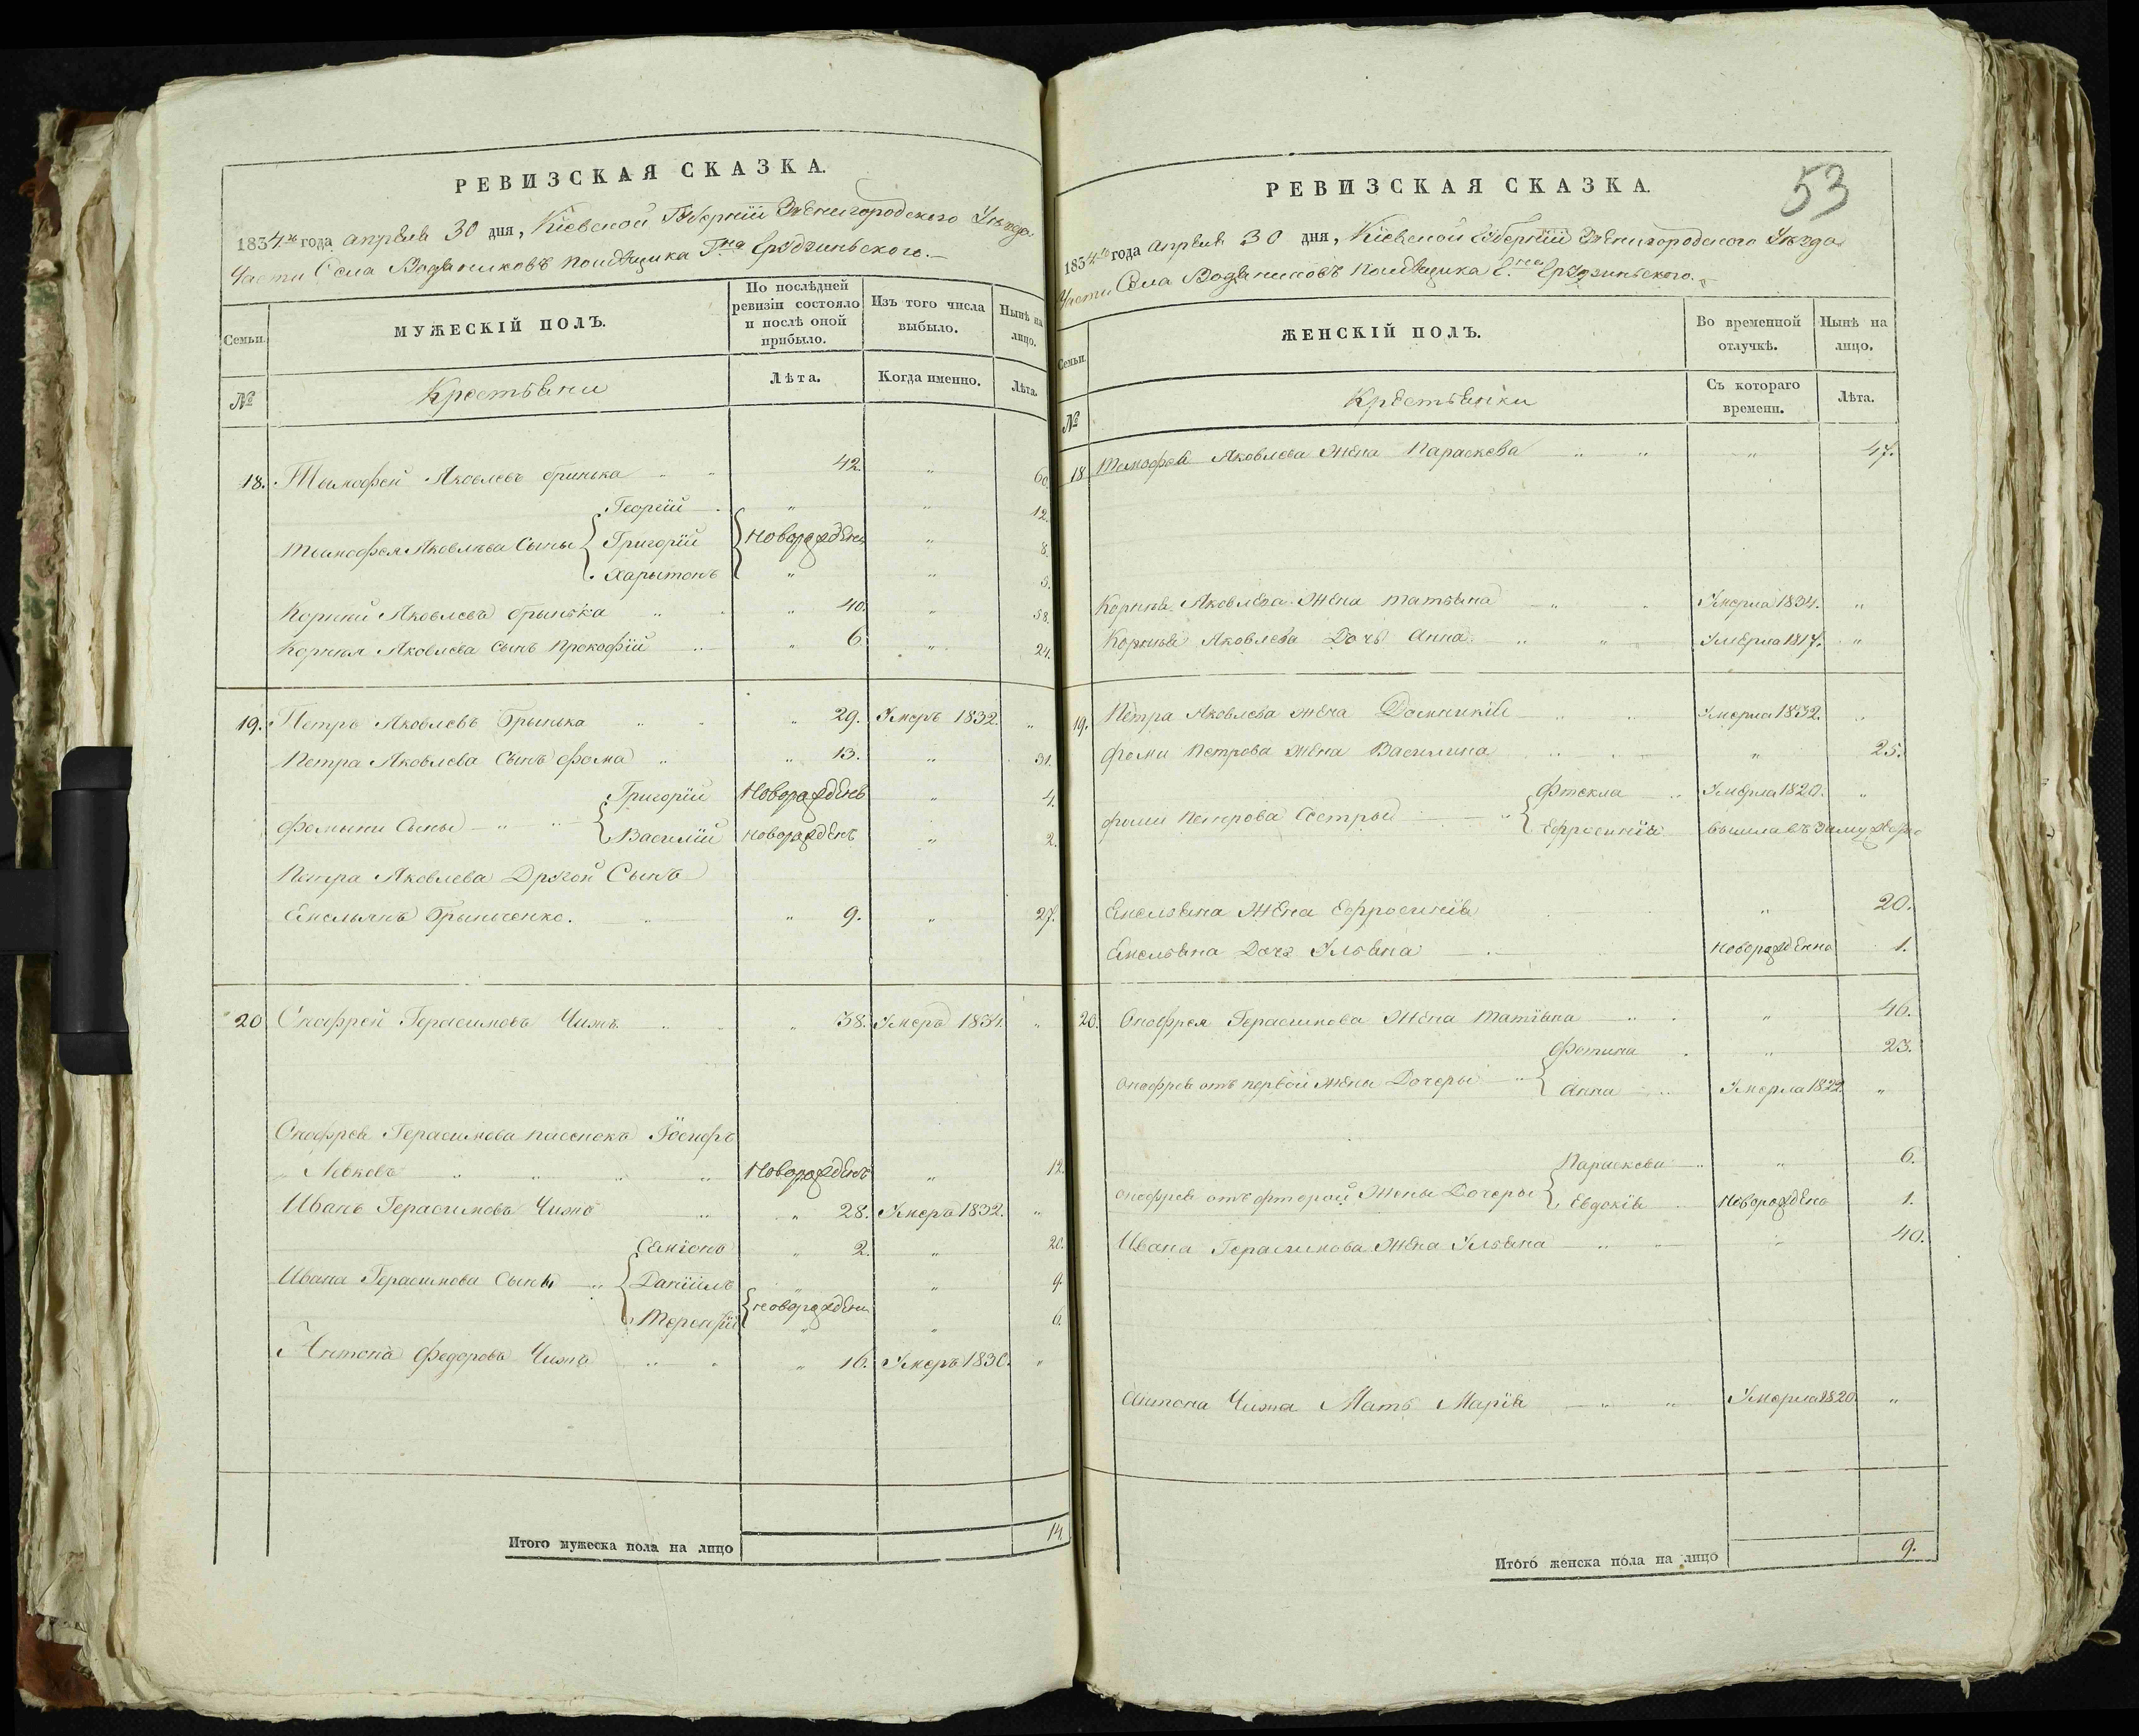 РЕВИЗСКАЯ СКАЗКА.
1834го года апреля 30 дня, Кіевской Губерніи Звенигородского Уезда
Части Села Водяниковъ помѣщика Гна Грудзиньского.
Семьи.
МУЖЕСКІЙ ПОЛЪ.
По послѣдней ревизіи состояло и послѣ оной прибыло.
Изъ того числа выбыло.
Нынѣ на лицо.
№
Крестьяни
Лѣта.
Когда именно.
Лѣта.
18. Тымофей Яковлевъ Гринька " " 42. " 60.
Георгій " " 12.
Тимофея Яковлева Сыны Григорій Новорождени " 8.
Харытонъ " " 5.
Корний Яковлевъ Грынька " " 40. " 58.
Корния Яковлева Сынъ Прокофій " " 6. " 24.
19. Петръ Яковлевъ Грынька " " " 29. Умеръ 1832. "
Петра Яковлева Сынъ Фома " " 13. " 31.
Григорій Новорожденъ " 4.
Фомыни Сыны " " Василій новорожденъ " 2.
Петра Яковлева Другой Сынъ
Емельянъ Грынченко. " " 9. " 27.
20 Онофрей Герасимовъ Чижъ. " " " 38. Умеръ 1834. "
Онофрея Герасимова пасенокъ Іосифъ
Левковъ " " " " Новорожденъ " 12.
Иванъ Герасимовъ Чижъ " " 28. Умеръ 1832. "
Семіонъ " 2. " 20.
Ивана Герасимова Сыны " Даніилъ " " 9.
Терентій новорождени " 6.
Антонъ Федоровъ Чижъ " " " 16. Умеръ 1830. "
Итого мужеска пола на лицо 14.
53
РЕВИЗСКАЯ СКАЗКА.
1834го года апреля 30 дня, Кіевской Губерніи Звенигородского Уезда
Части Села Водяниковъ помѣщика Гна Грудзиньского.
Семьи.
ЖЕНСКІЙ ПОЛЪ.
Во временной отлучкѣ.
Нынѣ на лицо.
№
Крестьянки
Съ котораго времени.
Лѣта.
18 Тимофея Яковлева Жена Параскева " " " 47.
Корния Яковлева Жена Татьяна " " Умерла 1834. "
Корнъя Яковлева Дочь Анна. " " Умерла 1817. "
19. Петра Яковлева жена Домникія " " Умерла 1832. "
Фоми Петрова Жена Василина " " " 25.
Фтекла " Умерла 1820. "
Фоми Петрова Сестры " Ефросинія вышла въ замужество
Емельяна Жена Ефросинія " 20.
Емельяна Дочь Ульяна новорожденна 1.
20. Онофрея Герасимова Жена Татіяна " " " 46.
Фотина " " 23.
Онофрея отъ первой жены Дочеры " Анна " Умерла 1822. "
Параскева " " 6.
Онофрея отъ фторой Жены Дочеры Евдокія " Новорожденъ 1.
Ивана Герасимова Жена Ульяна " " " 40.
Антона Чижа Мать Марія " " Умерла 1820. "
Итого женска пола на лицо 9.